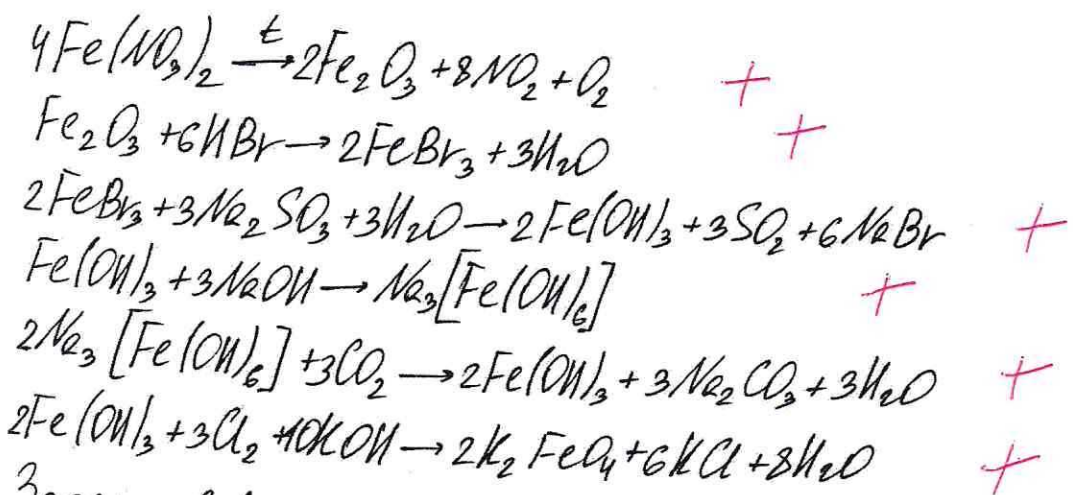 4Fe(NO₃)₂ —t→ 2Fe₂O₃ + 8NO₂ + O₂ +
Fe₂O₃ + 6HBr → 2FeBr₃ + 3H₂O +
2FeBr₃ + 3Na₂SO₃ + 3H₂O → 2Fe(OH)₃ + 3SO₂ + 6NaBr +
Fe(OH)₃ + 3NaOH → Na₃[Fe(OH)₆] +
2Na₃[Fe(OH)₆] + 3CO₂ → 2Fe(OH)₃ + 3Na₂CO₃ + 3H₂O +
2Fe(OH)₃ + 3Cl₂ + 10KOH → 2K₂FeO₄ + 6KCl + 8H₂O +